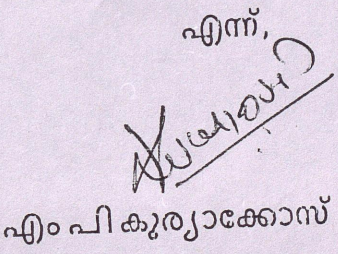 എന്ന്,
എം പി കുര്യാക്കോസ്